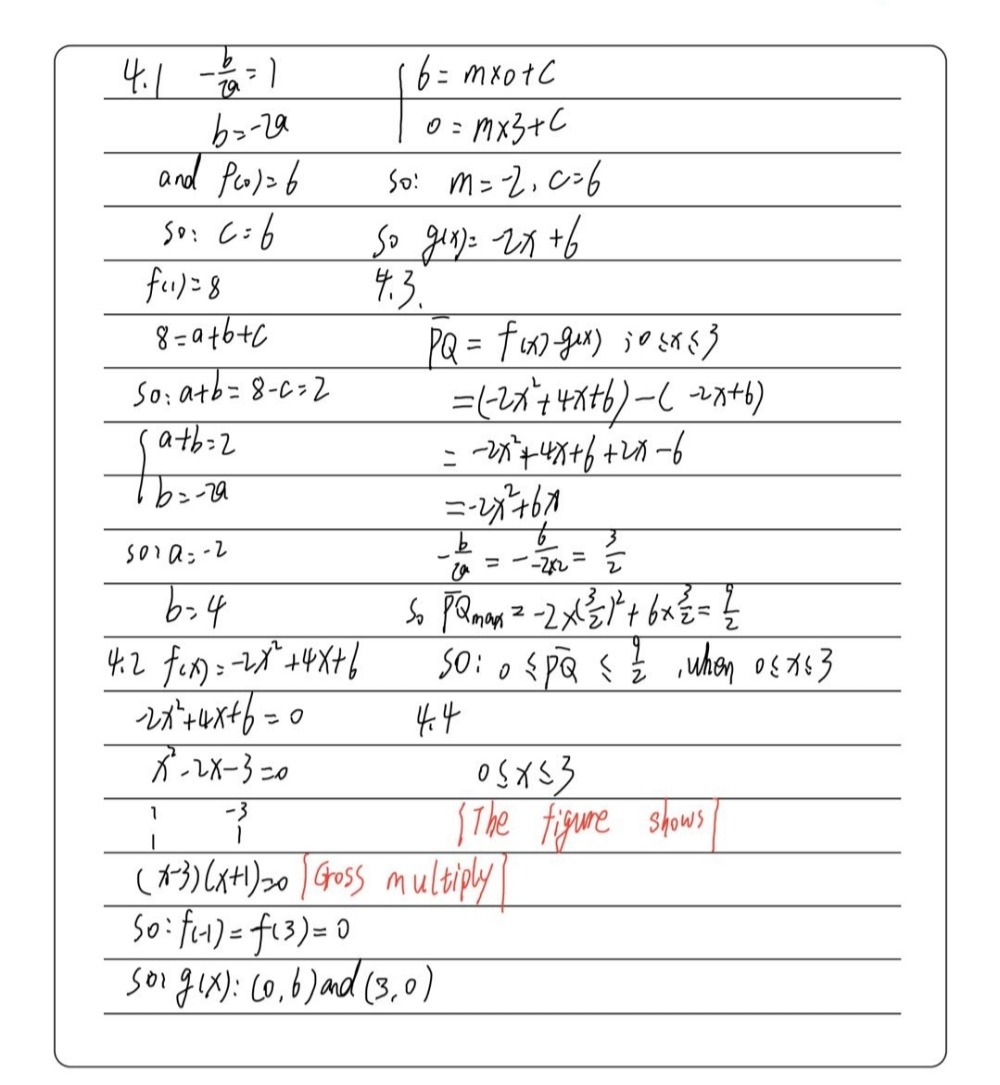 4.1 -b/2a = 1
b = -2a
and f(0) = 6
so: c = 6
f(1) = 8
8 = a+b+c
so: a+b = 8-c = 2
{ a+b = 2
b = -2a
so: a = -2
b = 4
4.2 f(x) = -2x²+4x+6
-2x²+4x+6 = 0
x²-2x-3 = 0
1 -3
1 1
(x-3)(x+1)=0 [Cross multiply]
so: f(-1) = f(3) = 0
so: g(x): (0,6) and (3,0)
{ 6 = m×0+c
0 = m×3+c
so: m = -2, c = 6
so g(x) = -2x+6
4.3.
P̅Q̅ = f(x)-g(x) ; 0≤x≤3
= (-2x²+4x+6)-( -2x+6)
= -2x²+4x+6+2x-6
= -2x²+6x
-b/2a = -6/-2×2 = 3/2
So P̅Q̅max = -2×(3/2)²+6×3/2 = 9/2
so: 0 ≤ P̅Q̅ ≤ 9/2 , when 0≤x≤3
4.4
0≤x≤3
[The figure shows]